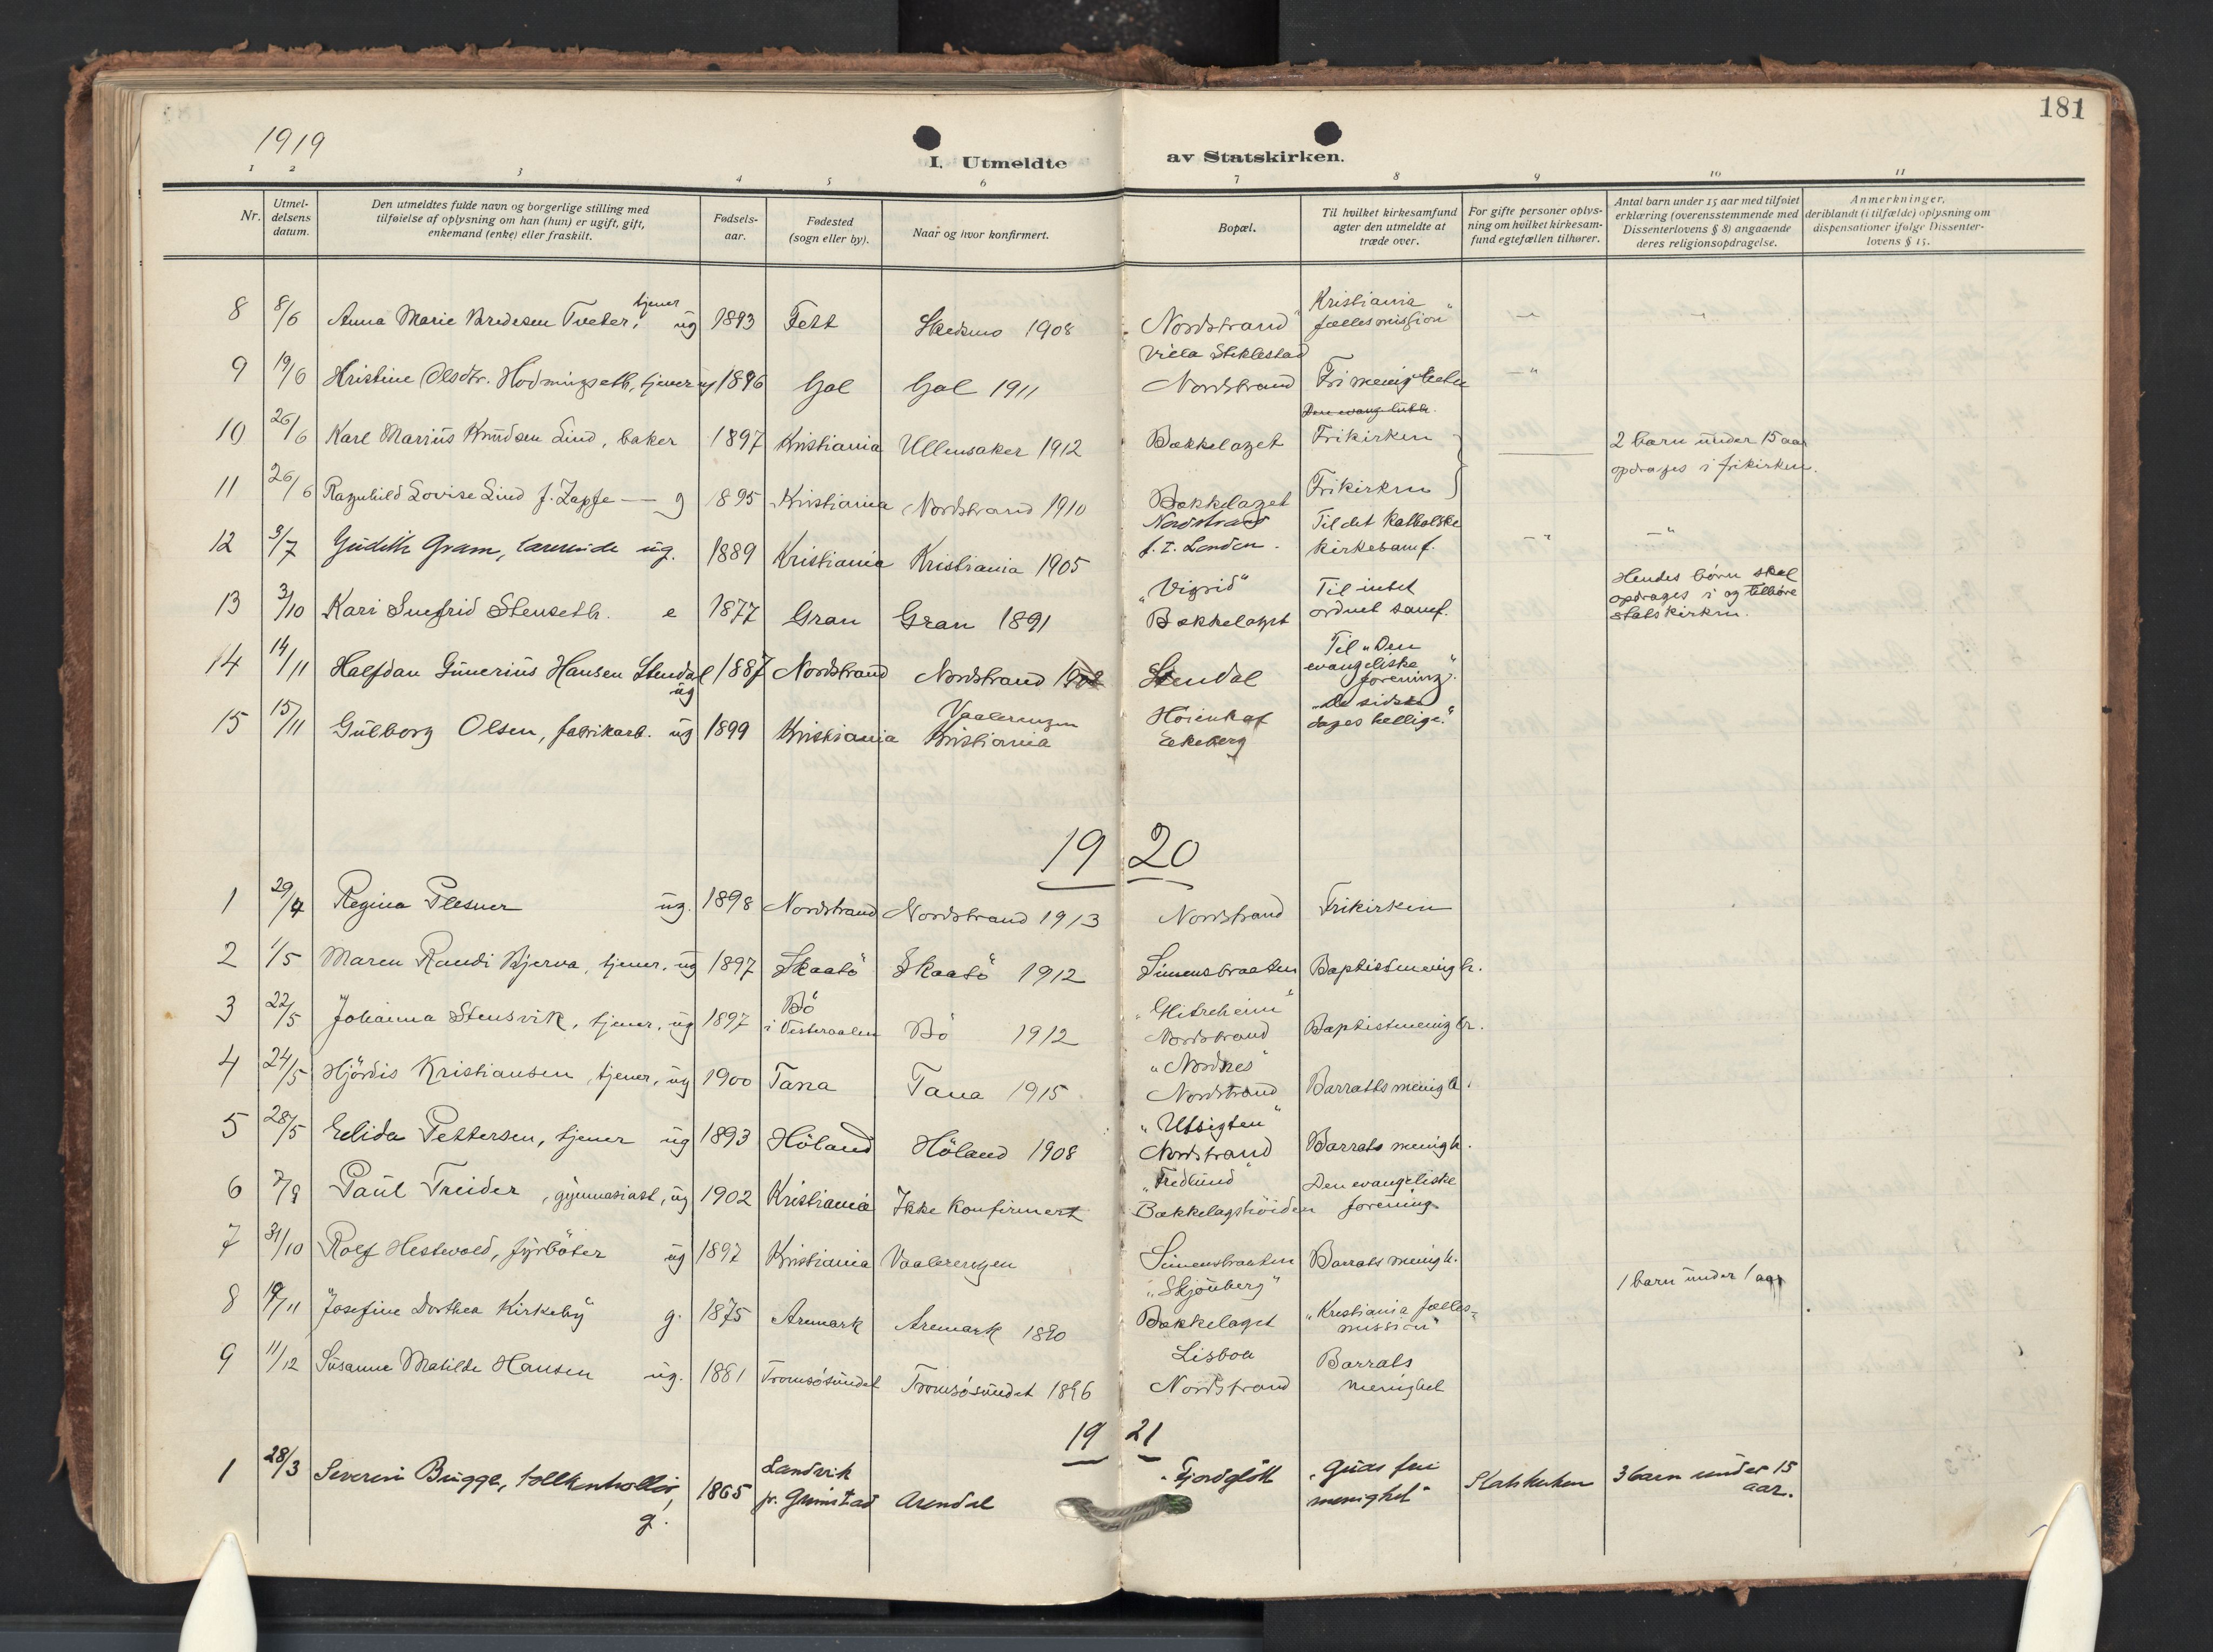 181
1919
I. Utmeldte av Statskirken.
1 2 3 4 5 6 7 8 9 10 11
Nr.
Utmel-
delsens
datum.
Den utmeldtes fulde navn og borgerlige stilling med
tilføielse af oplysning om han (hun) er ugift, gift,
enkemand (enke) eller fraskilt.
Fødsels-
aar.
Fødested
(sogn eller by).
Naar og hvor konfirmert.
Bopæl.
Til hvilket kirkesamfund
agter den utmeldte at
træde over.
For gifte personer oplys-
ning om hvilket kirkesam-
fund egtefællen tilhører.
Antal barn under 15 aar med tilføiet
erklæring (overensstemmende med
Dissenterlovens § 8) angaaende
deres religionsopdragelse.
Anmerkninger,
deriblandt (i tilfælde) oplysning om
dispensationer ifølge Dissenter-
lovens § 15.
8 8/6 Anna Marie Bredesen Tveter, tjener ug 1893 Fett Skedsmo 1908 "Nordstrand" Kristiania fællesmission"
9 19/6 Kristine Olsdtr. tjener ug 1896 Gol Gol 1911 Villa Stiklestad Nordstrand Frimenigheten
Den evang. luth.
10 26/6 Karl Marius Knudsen Lind, baker 1897 Kristiania Ullensaker 1912 Bækkelaget Frikirken 2 barn under 15 aar
opdrages i frikirken.
11 26/6 Ragnhild Lovise Lind f. Zapfe — g 1895 Kristiania Nordstrand 1910 Bækkelaget Frikirken
12 3/7 Judith Gram, lærerinde ug. 1889 Kristiania Kristiania 1905 Nordstrand f. t. London. Til det katholske kirkesamf.
13 3/10 Kari Stenseth. e 1877 Gran Gran 1891 "Vigrid" Bækkelaget Til intet ordnet samf. Hendes børn skal opdrages i og tilhøre statskirken.
14 14/11 Halfdan Gunerius Hansen Stendal ug 1887 Nordstrand Nordstrand 1902 Stendal Til "Den evangeliske forening".
15 15/11 Gulborg Olsen, fabrikarb. ug 1899 Kristiania Vaalerengen Kristiania Ekeberg "De sidste dages hellige."
19 20
1 29/4 Regina Plesner ug. 1898 Nordstrand Nordstrand 1913 Nordstrand Frikirken
2 1/5 Maren Randi Bjerva, tjener, ug 1897 Skaatö Skaatö 1912 Simensbraaten Baptistmenigh.
3 22/5 Johanna Stensvik, tjener, ug 1897 Bö i Vesteraalen Bö 1912 "Glitreheim" Nordstrand Baptistmenigh.
4 24/5 Hjördis Kristiansen, tjener, ug 1900 Tana Tana 1915 "Nordnes" Nordstrand Barratts menigh.
5 28/5 Elida Pettersen, tjener ug 1893 Höland Höland 1908 "Utsigten" Nordstrand Barrats menigh.
6 7/9 Paul Treider, gymnasiast, ug 1902 Kristiania Ikke konfirmert "Fredlund" Bækkelagshöiden Den evangeliske forening
7 31/10 Rolf Hestvold, fyrböter ug 1897 Kristiania Vaalerengen Simensbraaten Barrats menigh.
8 19/11 Josefine Dorthea Kirkeby g. 1875 Aremark Aremark 1890 "Skjönberg" Bækkelaget "Kristiania fælles-
mission" 1 barn under 1 aar
9 11/12 Susanne Matilde Hansen ug. 1881 Tromsösundet Tromsösundet 1896 Lisboa Nordstrand Barrats menighet
19 21
1 28/3 Severin Bugge, tollkontrollör, g. 1865 Landvik pr. Grimstad Arendal "Fjordglött "Guds fri menighet" Statskirken 3 barn under 15 aar.